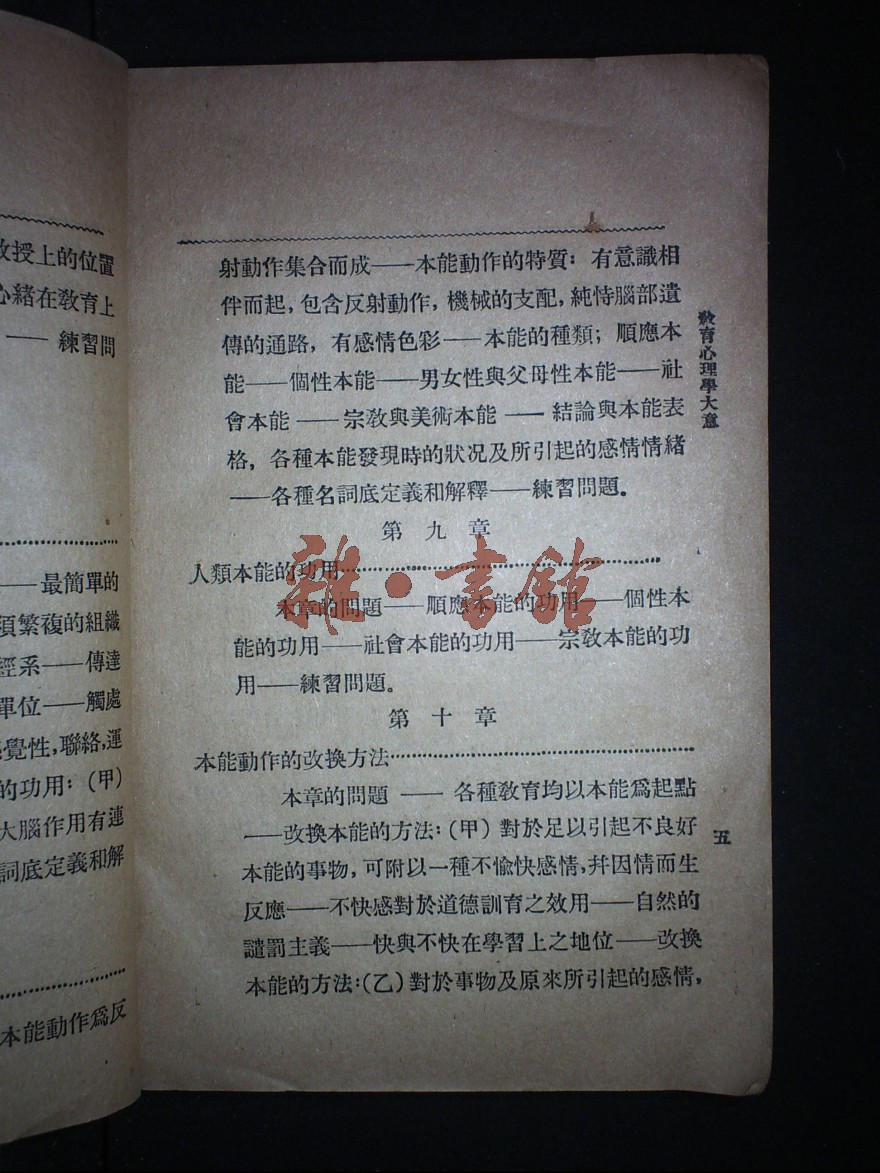 教授上的位置
心緒在敎育上
——練習問
——最簡單的
須繁複的組織
經系——傳達
單位——觸處
覺性,聯絡,運
的功用:(甲)
大腦作用有連
詞底定義和解
本能動作爲反
射動作集合而成——本能動作的特質:有意識相
伴而起,包含反射動作,機械的支配,純恃腦部遺
傳的通路,有感情色彩——本能的種類;順應本
能——個性本能——男女性與父母性本能——社
會本能——宗敎與美術本能——結論與本能表
格,各種本能發現時的狀况及所引起的感情情緒
——各種名詞底定義和解釋——練習問題。
第九章
人類本能的功用……………………………
本章的問題——順應本能的功用——個性本
能的功用——社會本能的功用——宗敎本能的功
用——練習問題。
第十章
本能動作的改換方法…………………………
本章的問題——各種敎育均以本能爲起點
——改換本能的方法:(甲)對於足以引起不良好
本能的事物,可附以一種不愉快感情,幷因情而生
反應——不快感對於道德訓育之效用——自然的
譴罰主義——快與不快在學習上之地位——改換
本能的方法:(乙)對於事物及原來所引起的感情,
敎育心理學大意
五
雜·書館